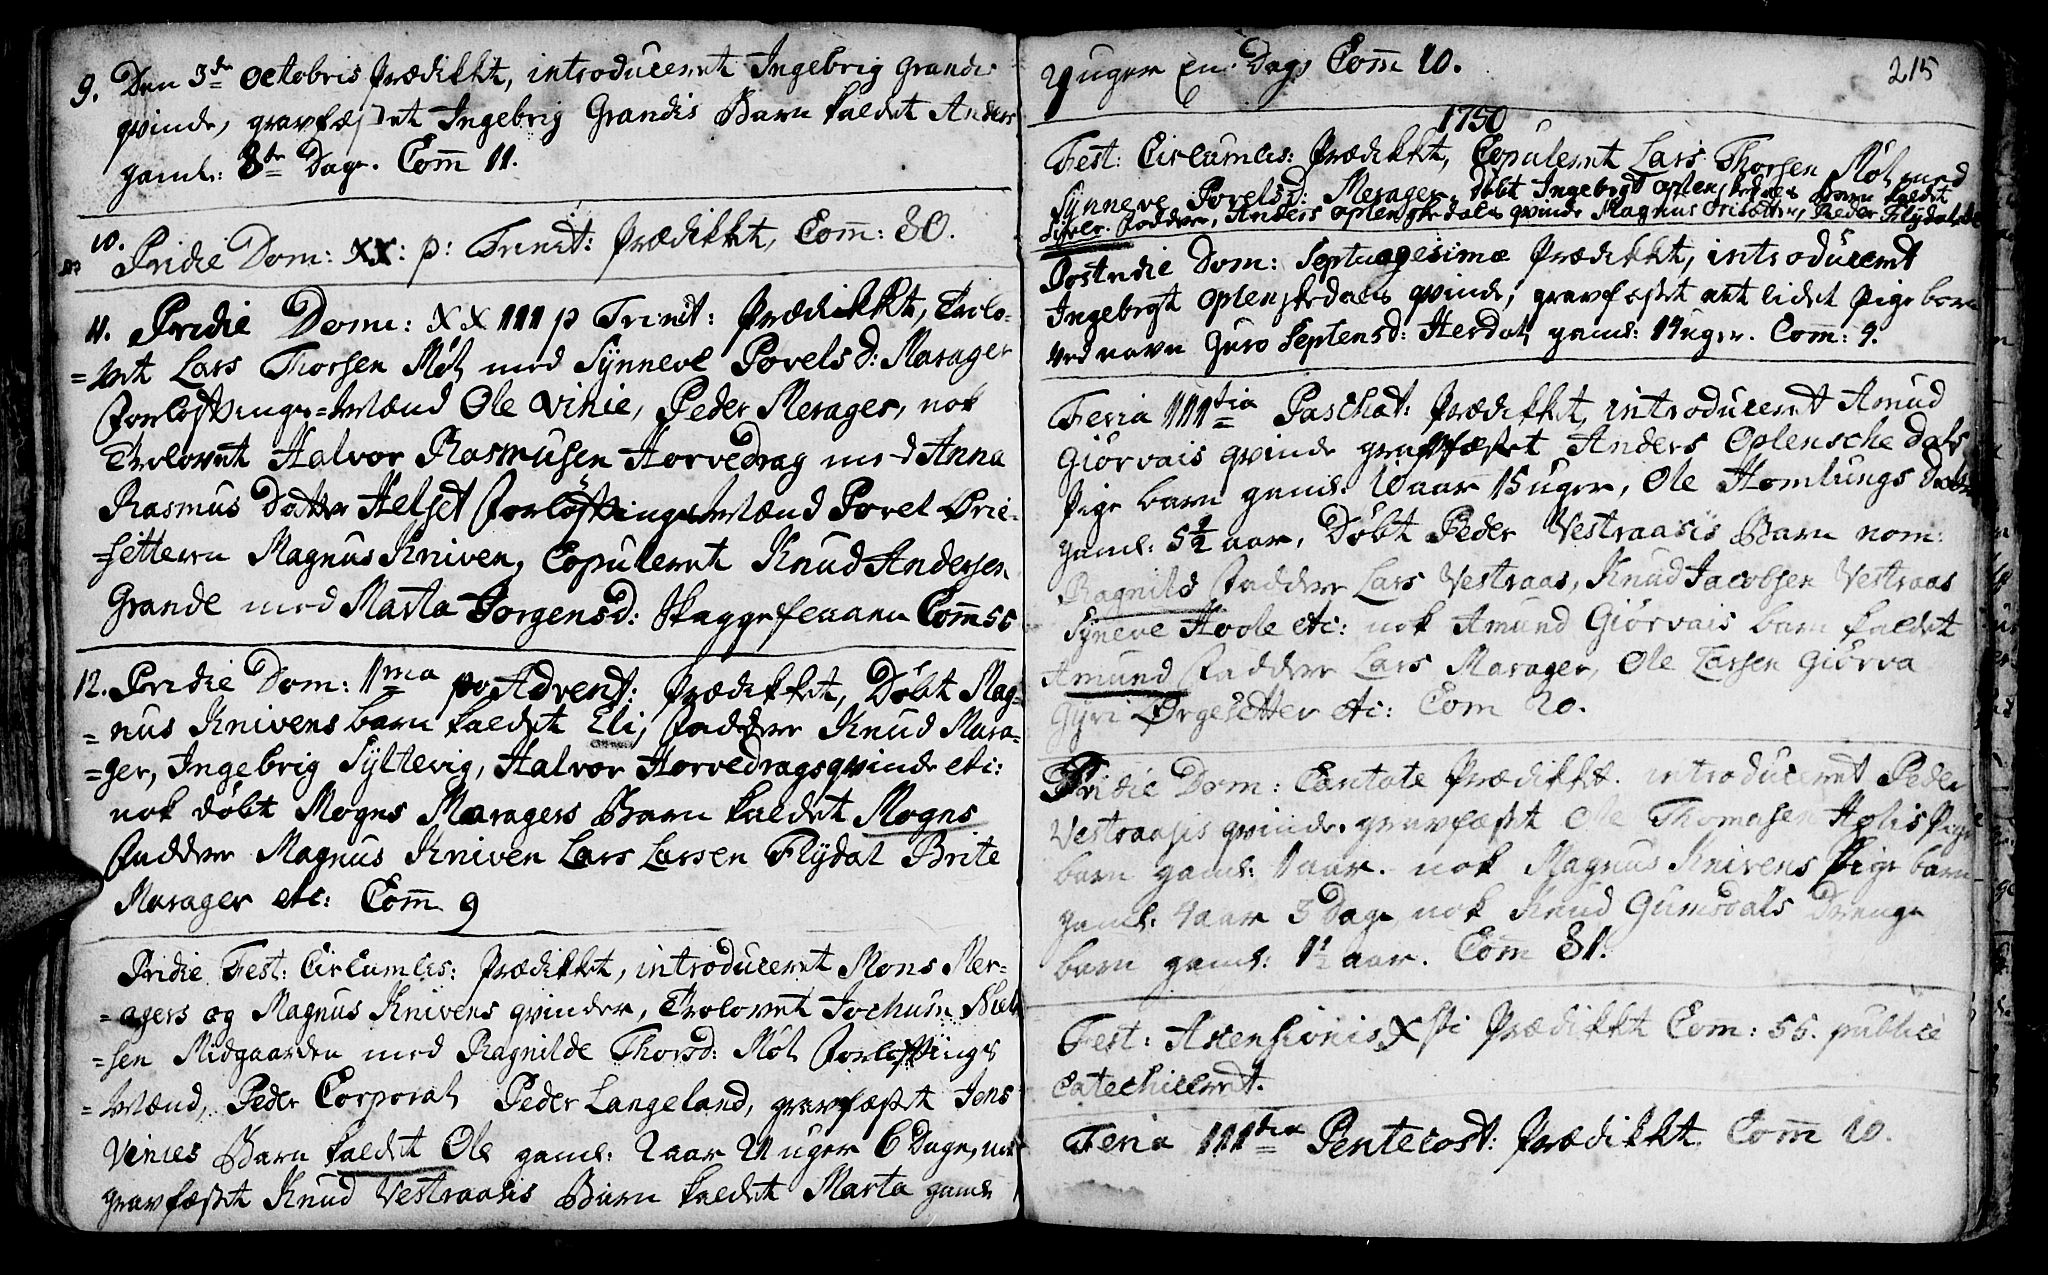 9. Den 3de Octobris Prædikket, introduceret Ingebrig Grandes
qvinde, gravfæstet Ingebrig Grandis Barn kaldet Anders
gaml: 8te Dage. Com̄ 11.
10. Pridie Dom: XX: p: Trinit: Prædikket, Com̄: 80.
11. Pridie Dom: XXIII p Trinit: Prædikket, Trolo-
=vet Lars Thorsen Møl med Synneve Povelsd: Marager
Forløftnings=Mænd Ole Vinie, Peder Merager, nok
Trolovet Halvor Rasmusen Horvedrag med Anna
Rasmus Datter Helset Forløftnings Mænd Povel Ørie-
=settern Magnus Kniven, Copuleret Knud Andersen
Grande med Marta Jorgensd: Skaggeflaaen Com̄ 56
12. Pridie Dom: 1ma po Advent: Prædikket, Døbt Mag-
=nus Knivens barn kaldet Eli, Faddere Knud Mara-
=ger, Ingebrig Syltevig, Halvor Horvedragsqvinde etc:
nok døbt Mogns Maragers Barn kaldet Mogns
Faddere Magnus Kniven Lars Larsen Flydal Brite
Marager etc: Com̄ 9
Pridie Fest: Circumcis: Prædikket, introduceret Mons Mer-
=agers og Magnus Knivens qvinder, Trolovet Jochum Niel
=sen Midgaarden med Ragnilde Thorsd: Møl Forløftnings
=Mænd, Peder Corporal Peder Langeland, gravfæstet Jens
Vinies Barn kaldet Ole gaml: 2 aar 21 uger 6 Dage, nok
gravfæstet Knud Vestraasis Barn kaldet Marta gaml
215
uger en: Dags Com̄ 10.
1750
Fest: Circumcis: Prædikket, Copuleret Lars Thorsen Møl med
Synneve Povelsd: Merager, døbt Ingebrigt Oplenskedals Barn kaldet
Faddere, Anders Oplenskedals qvinde Magnus Orisetter, Peder Flydal etc
Postridie Dom: Septuagesimæ Prædikket, introduceret
Ingebrigt Oplenskedals qvinde, gravfæstet et lidet Pige barn
ved navn Guro Septensd: Herdal gaml: 14 uger. Com̄: 9.
Feria IIItia Paschat: Prædikket, introduceret Amud
Giørvais qvinde gravfæstet Anders Oplensche Dals
Pige barn gaml: 10 aar 15 uger, Ole Homlungs Datter
gaml: 5½ aar, Døbt Peder Vestraasis Barn nom:
Ragnild Faddere Lars Vestraas, Knud Jacobsen Vestraas
Syneve Hole etc: nok Amund Giørvais barn kaldet
Amund Faddere Lars Marager, Ole Larsen Giørva
Gyri Ørgesetter etc: Com 20.
Pridie Dom: Cantate Prædikket. introduceret Peder
Vestraasis qvinde. gravfæstet Ole Thomasen Holis Pige
barn gaml: 1 aar. nok Magnus Knivens Pige barn
gaml: 4 aar 3 Dage nok Knud Gumsdals Drenge
barn gaml: 1½ aar. Com 81.
Fest: Ascensionis Xsti Prædikket Com: 55. publice
Catechiceret.
Feria IIItia Pentecost: Prædikket Com̄ 10.